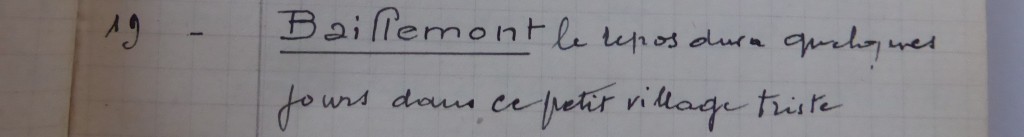 19 - Baillemont le repos dura quelques
jours dans ce petit village triste